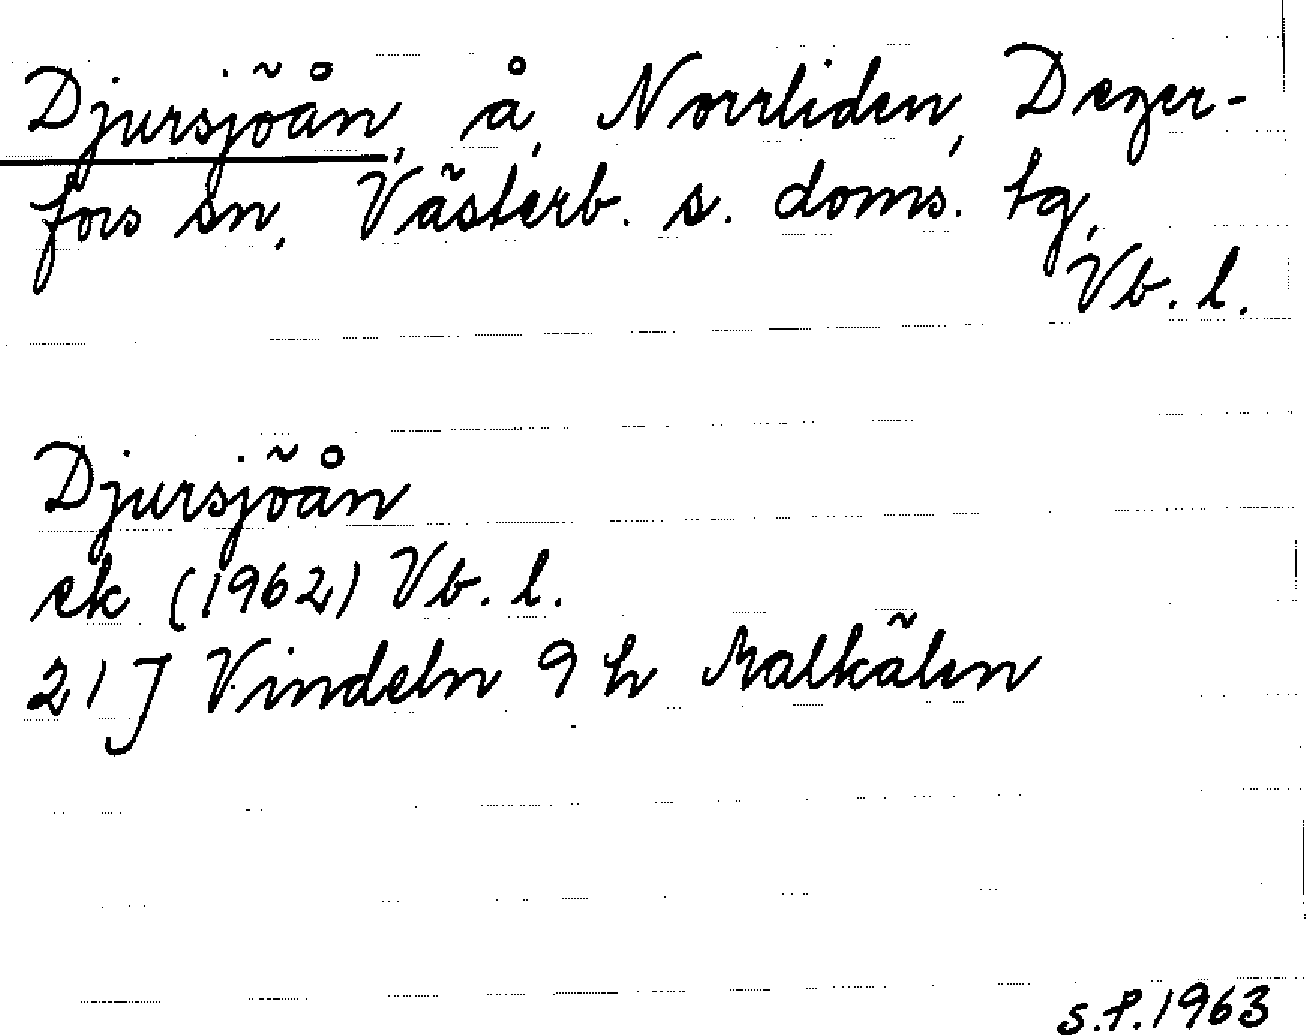 Djursjöån, å, Norrliden, Deger-
fors sn, Västerb. s. doms. tg,
Vb. l.
Djursjöån
ek (1962) Vb. l.
21 J Vindeln 9 h Malkälen
S.P. 1963